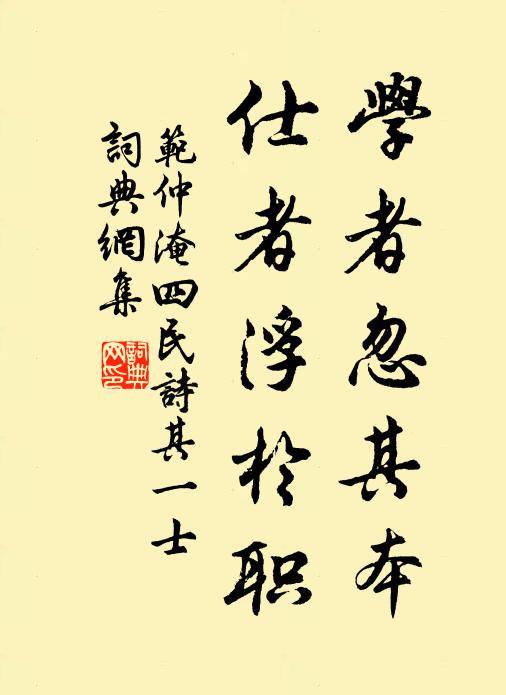 學者忽其本
仕者浮於职
範仲淹四民詩其一士
詞典網集
詞典
网印